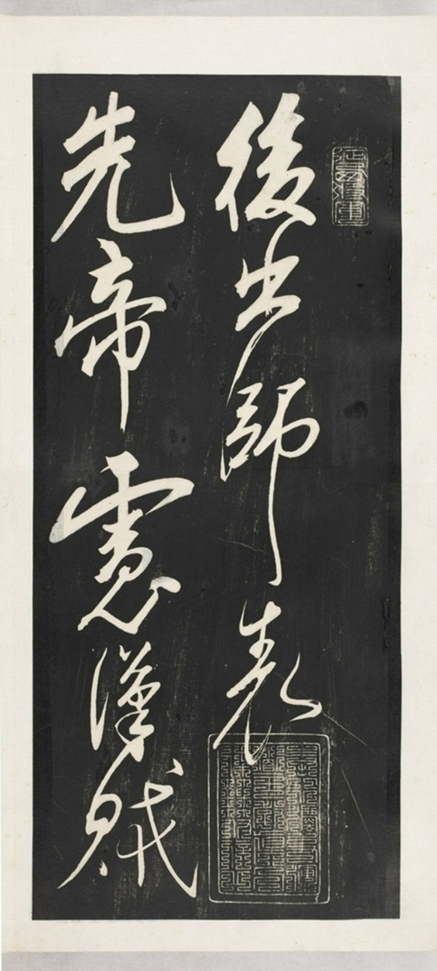 後出師表
先帝慮漢賊